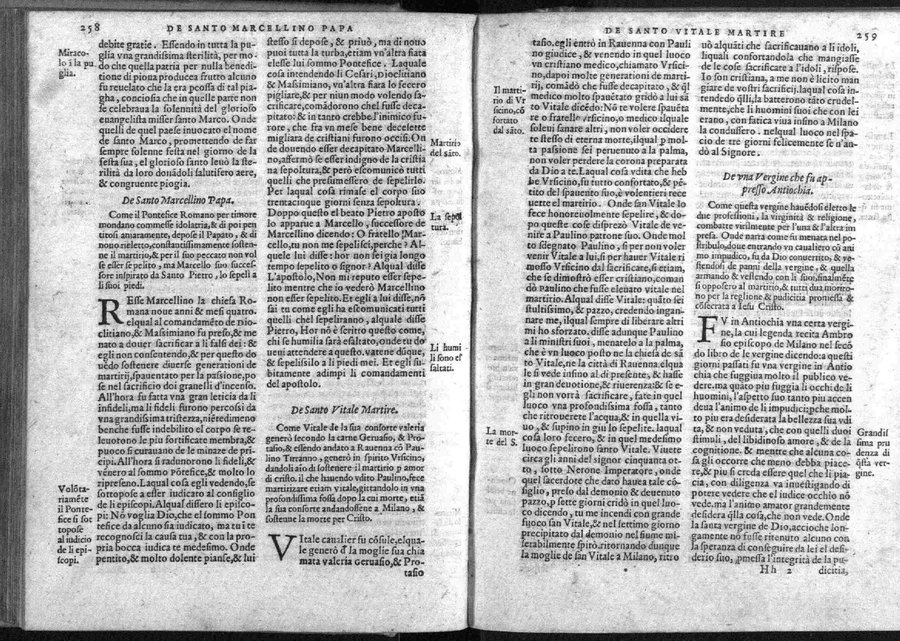 258
DE SANTO MARCELLINO PAPA
Miraco-
lo ī la pu
glia.
debite gratie. Essendo in tutta la pu-
glia vna grandissima sterilità, per mo-
do che quella patria per nulla benedi-
tione di piona producea frutto alcuno
fu reuelato che la era pcossa di tal pia-
gha, conciosia che in quelle parte non
se celebraua la solennità del glorioso
euangelista misser santo Marco. Onde
quelli di quel paese inuocato el nome
de santo Marco, promettendo de far
sempre solenne festa nel giorno de la
festa sua, el glorioso santo leuò la ste-
rilità da loro donādoli salutifero aere,
& congruente piogia.
De Santo Marcellino Papa.
Come il Pontefice Romano per timore
mondano commesse idolatria, & di poi pen
titosi amaramente, depose il Papato, & di
nouo rieletto, constantissimamente sosten-
ne il martirio, & per il suo peccato non vol
se esser sepelito, ma Marcello suo succes-
sore inspirato da Santo Pietro, lo sepelì a
li suoi piedi.
REsse Marcellino la chiesa Ro-
mana noue anni & mesi quatro.
elqual al comandamēto de Dio-
clitiano, & Massimiano fu preso, & me
nato a douer sacrificar a li falsi dei: &
egli non consentendo, & per questo do
uēdo sostenere diuerse generationi de
martirij, spauentato per la passione, po
se nel sacrificio doi granelli d'incenso.
All'hora fu fatta vna gran leticia da li
infideli, ma li fideli furono percossi da
vna grandissima tristezza, niētedimeno
benche fusse indebilito el corpo se re-
leuorono le piu fortificate membra, &
puoco si curauano de le minaze de prī-
cipi. All'hora si radunorono li fideli, &
vēnero al sommo pōtefice, & molto lo
ripreseno. Laqual cosa egli vedendo, se
sottopose a esser iudicato al consiglio
de li episcopi. Alqual dissero li episco-
pi: Nō voglia Dio, che el sommo Pon
tefice da alcuno sia iudicato, ma tu ī te
recognosci la causa tua, & con la pro-
pria bocca iudica te medesimo. Onde
pentito, & molto dolente pianse, & lui
Volōta-
riamēte
il Ponte-
fice si sot
topose
al iudicio
de li epi-
scopi.
stesso si depose, & priuò, ma di nouo
poi tutta la turba, etiam vn'altra fiata
elesse lui sommo Pontefice. Laquale
cosa intendendo li Cesari, Dioclitiano
& Massimiano, vn'altra fiata lo fecero
pigliare, & per niun modo volendo sa-
crificare, comādorono chel fusse deca-
pitato: & in tanto crebbe l'inimico fu-
rore, che fra vn mese bene decelette
migliara de cristiani furono occisi. On
de douendo esser decapitato Marcelli-
no, affermò se esser indigno de la cristia
na sepoltura, & però escomunicò tutti
quelli che presummessero de sepelirlo.
Per laqual cosa rimase el corpo suo
trentacinque giorni senza sepoltura.
Doppo questo el beato Pietro aposto
lo apparue a Marcello, successore de
Marcellino dicendo: O fratello Mar-
cello, tu non me sepelisci, perche? Al-
quale lui disse: hor non sei gia longo
tempo sepelito o signor? Alqual disse
L'apostolo, Non mi reputo esser sepe-
lito mentre che io vederò Marcellino
non esser sepelito. Et egli a lui disse, nō
sai tu come egli ha escomunicati tutti
quelli chel sepeliranno, alquale disse
Pietro, Hor nō è scritto questo come,
chi se humilia sarà esaltato, onde tu do
ueui attendere a questo. vatene dūque,
& sepelissilo a li piedi mei. Et egli su-
bitamente adimpì li comandamenti
del apostolo.
Martirio
del sāto.
La sepol
tura.
Li humi
li sono es
saltati.
De Santo Vitale Martire.
Come Vitale de la sua consorte valeria
generò secondo la carne Geruasio, & Pro-
tasio, & essendo andato a Rauenna cō Pau-
lino Tiranno, generò in spirito Vrsicino,
dandoli aio di sostenere il martirio p amor
di cristo. il che hauendo vdito Paulino, fece
martirizare etiam vitale, gittandolo in vna
profondissima fossa dopo la cui morte, etiā
la sua consorte andandossene a Milano, &
sostenne la morte per Cristo.
VItale caualier fu cōsule, elqua-
le generò d'la moglie sua chia
mata valeria Geruasio, & Pro-
tasio
DE SANTO VITALE MARTIRE
259
Il marti-
rio di Vr
sicino, cō
fortato
dal sāto.
tasio. egli entrò in Rauenna con Pauli
no giudice, & venendo in quel luoco
vn cristiano medico, chiamato Vrsici-
no, dapoi molte generationi de marti-
rij, comādò che fusse decapitato, & ql
medico molto spauētato gridò a lui sā
to Vitale dicēdo: Nō te volere spauēta
re o fratello Vrsicino, o medico ilquale
soleui sanare altri, non voler occidere
te stesso di eterna morte, ilqual p mol
ta passione sei peruenuto a la palma,
non voler perdere la corona preparata
da Dio a te. Laqual cosa vdita che heb
be Vrsicino, fu tutto confortato, & pē-
tito del spauento suo, è volentieri rece
uette el martirio. Onde san Vitale lo
fece honoreuolmente sepelire, & do-
po queste cose dispreziò Vitale de ve-
nire a Paulino patrone suo. Onde mol
to sdegnato Paulino, sì per non voler
venir Vitale a lui, sì per hauer Vitale ri
mosso Vrsicino dal sacrificare, sì etiam,
che se dimostrò esser cristiano, coman
dò Paulino che fusse eleuato vitale nel
martirio. Alqual disse Vitale: quāto sei
stultissimo, & pazzo, credendo ingan-
nare me, ilqual sempre di liberare altri
mi ho sforzato. disse adunque Paulino
a li ministri suoi, menatelo a la palma,
che è vn luoco posto ne la chiesa de sā
to Vitale, ne la città di Rauenna. elqua
le si vede insino al di presente, & hasse
in gran deuotione, & riuerenza: & se e-
gli non vorrà sacrificare, fate in quel
luoco vna profondissima fossa, tanto
che ritrouerete l'acqua, & in quella vi-
uo, & supino in giu lo sepelite. laqual
cosa loro fecero, & in quel medesimo
luoco sepelirono santo Vitale. Viuette
circa gli anni del signor cinquanta ot-
to, sotto Nerone Imperatore, onde
quel sacerdote che dato hauea tale cō-
siglio, preso dal demonio & deuenuto
pazzo, p sette giorni cridò in quel luo-
co dicendo, tu me incendi con grande
fuoco san Vitale, & nel settimo giorno
precipitado dal demonio nel fiume mi-
serabilmente spirò. ritornando dunque
la moglie de san Vitale a Milano, ritro
La mor-
te del S.
uò alquāti che sacrificauano a li idoli,
liquali confortandola che mangiasse
de le cose sacrificate a l'idoli, rispose.
Io son cristiana, a me non è licito man
giare de vostri sacrificij. laqual cosa in-
tendendo qlli, la batterono tāto crudel-
mente, che li huomini suoi che con lei
erano, con fatica viua insino a Milano
la condussero. nelqual luoco nel spa-
cio de tre giorni felicemente se n'an-
dò al Signore.
De vna Vergine che fu ap-
presso Antiochia.
Come questa vergine hauēdosi eletto le
due professioni, la virginità & religione,
combatte virilmente per l'una & l'altra im
presa. Onde narra come fu menata nel po-
stribulo, doue entrando vn caualiero cō ani
mo impudico, fu da Dio conuertito, & ve-
stendosi de panni della vergine, & quella
armando & vestendo con li suoi, finalmēte
si opposero al martirio, & tutti dua moriro-
no per la reglione & pudicitia promessa &
cōsecrata a Iesu Cristo.
FV in Antiochia vna certa vergi-
ne, la cui legenda recita Ambro
sio episcopo de Milano nel secō
do libro de le vergine dicendo: a questi
giorni passati fu vna vergine in Antio
chia che fuggiua molto il publico ve-
dere. ma quāto piu fuggia li occhi de li
huomini, l'aspetto suo tanto piu accen
deua l'animo de li impudici: pche mol-
to piu era desiderata la bellezza sua vdi
ta, & non veduta, che con quelli duoi
stimuli, del libidinoso amore, & de la
cognitione. & mentre che alcuna co-
sa gli occorre che meno debba piace-
re, & piu si creda esser quel che li pia-
cia, con diligenza va inuestigando di
potere vedere che el iudice occhio nō
vede. ma l'animo amator grandemente
desidera qlla cosa, che non vede. Onde
la santa vergine de Dio, accioche lon-
gamente nō fusse ritenuto alcuno con
la speranza di conseguire da lei el desi-
derio suo, pmessa l'integrità de la pu-
Grandis
sima pru
denza di
qsta ver-
gine.
Hh 2
dicitia,